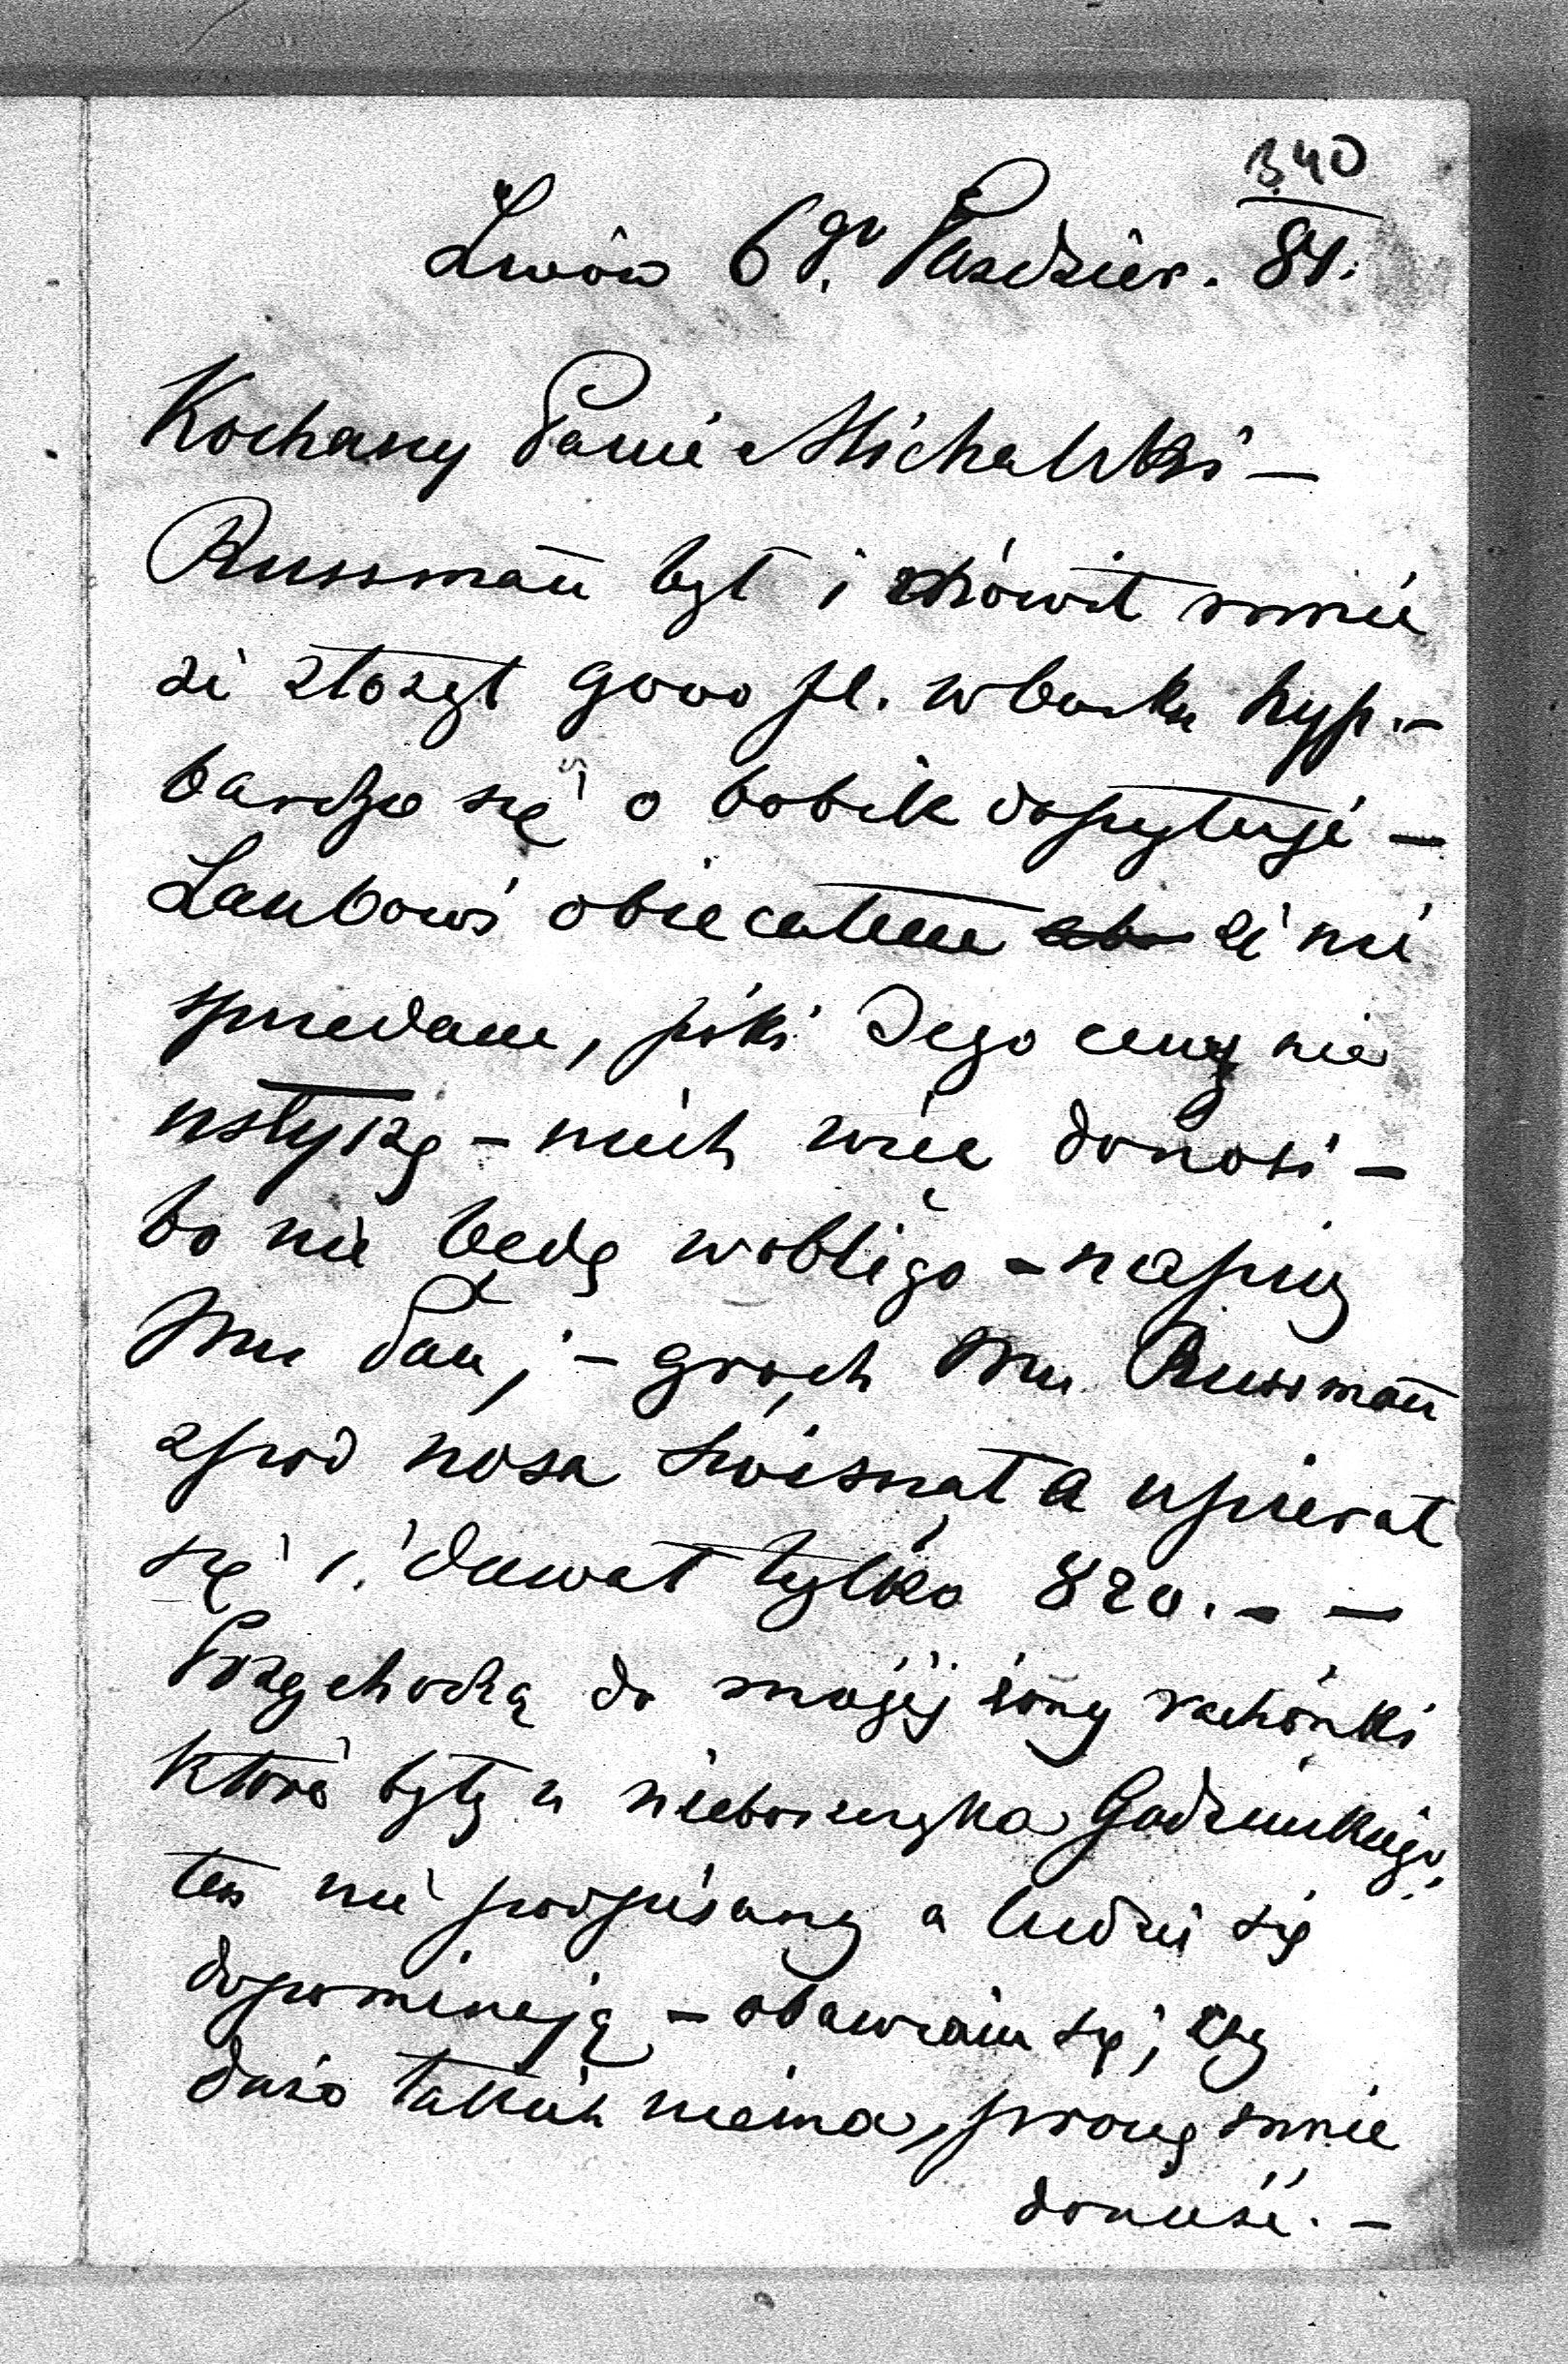 340
Lwów 6go Paździer. 84.
Kochany Panie Michalski –
Russmañ był i mówił mnie
że złożył 9000 fl. w banku hyp. –
bardzo się o bobik dopytuje –
Laubowi obiecałem że nie
sprzedam, póki Jego ceny nie
usłyszę – niech więc donosi –
bo nie będę w obligo – napisz
Mu Pan, – groch Mu Russmañ
z pod nosa świsnął a upierał
się i dawał tylko 820. – –
Przychodzą do mojej żony rachónki
które były u nieboszczyka
ten nie podpisany a ludzie się
dopominają – obawiam się, czy
dużo takich niema, proszę mnie
donieść. –